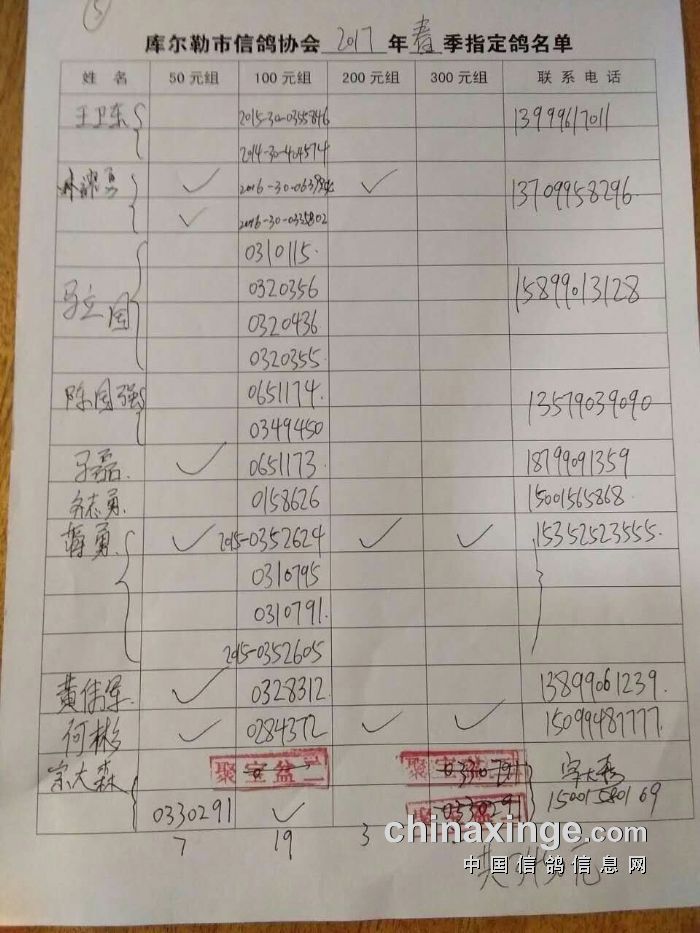 5
库尔勒市信鸽协会 2017 年 春 季指定鸽名单
姓名 50元组 100元组 200元组 300元组 联系电话
王卫东 2015-30-0355846 13999617011
2014-30-404574
勇 ✓ 2016-30-063984 ✓ 13709958296
✓ 2016-30-0335802
0310115.
马立国 0320356 15899013128
0320436
0320355.
陈国强 0651174. 13579039090
0349450
马磊. ✓ 0651173. 18799091359
志勇. 0158626 15001565868.
蒋勇. ✓ 2015-0352624 ✓ ✓ 15352523555.
0310795
0310791.
2015-0352605
黄伟军. ✓ 0328312 13899061239.
何彬 ✓ 0284372 ✓ ✓ 15099487777.
宗大森 聚宝盆 聚宝盆 宗大森
0330291 ✓ 聚 15001580169
7 19 3
chinaxinge.com
共 元
中国信鸽信息网